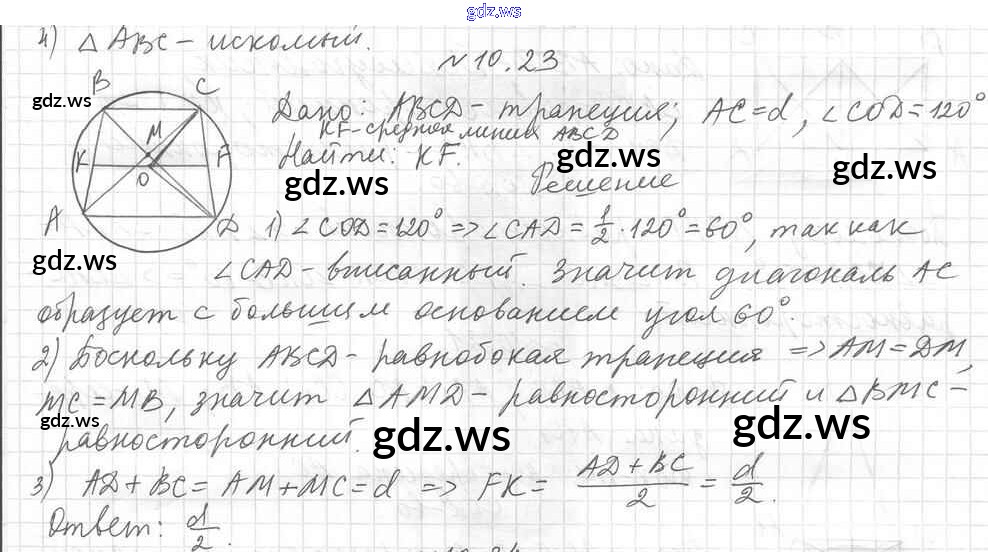 gdz.ws
4) △ABC – искомый.
№ 10.23
B C
gdz.ws
Дано: ABCD – трапеция; AC = d, ∠COD = 120°
KF – средняя линия ABCD
M
K F
O
Найти: KF.
gdz.ws
gdz.ws
gdz.ws
Решение
A D
1) ∠COD = 120° => ∠CAD = 1/2 · 120° = 60°, так как
gdz.ws
∠CAD – вписанный. Значит диагональ AC
образует с большим основанием угол 60°.
2) Поскольку ABCD – равнобокая трапеция => AM = DM,
MC = MB, значит △AMD – равносторонний и △BMC –
gdz.ws
равносторонний.
gdz.ws
gdz.ws
3) AD + BC = AM + MC = d => FK = (AD + BC)/2 = d/2.
Ответ: d/2.